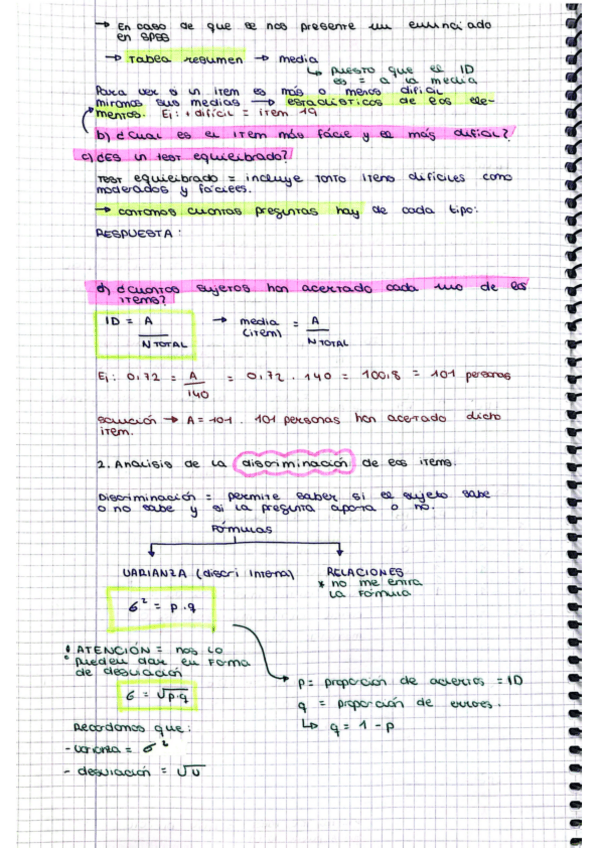 → En caso de que se nos presente un enunciado
en SPSS
→ Tabla resumen → media
↳ puesto que el ID
es = a la media
Para ver si un item es más o menos dificil
miramos sus medias → estadísticos de los ele-
mentos. Ej: + difícil = item 19
b) ¿Cual es el item más fácil y el más dificil?
c) ¿ES un test equilibrado?
Test equilibrado = incluye tanto items dificiles como
moderados y fáciles.
→ contamos cuantas preguntas hay de cada tipo:
RESPUESTA:
d) ¿cuantos sujetos han acertado cada uno de los
items?
ID = A / N TOTAL → media (item) = A / N TOTAL
Ej: 0,72 = A / 140 = 0,72 · 140 = 100,8 = 101 personas
solución → A = 101. 101 personas han acertado dicho
item.
2. Analisis de la discriminación de los items.
Discriminación = permite saber si el sujeto sabe
o no sabe y si la pregunta aporta o no.
Fórmulas
VARIANZA (discri interna) RELACIONES
* no me entra
la fórmula
σ² = p·q
! ATENCIÓN = nos lo
pueden dar en forma
de desviación
σ = √p·q
p = proporción de aciertos = ID
q = proporción de errores.
↳ q = 1 - p
Recordamos que:
- varianza = σ²
- desviación = √v